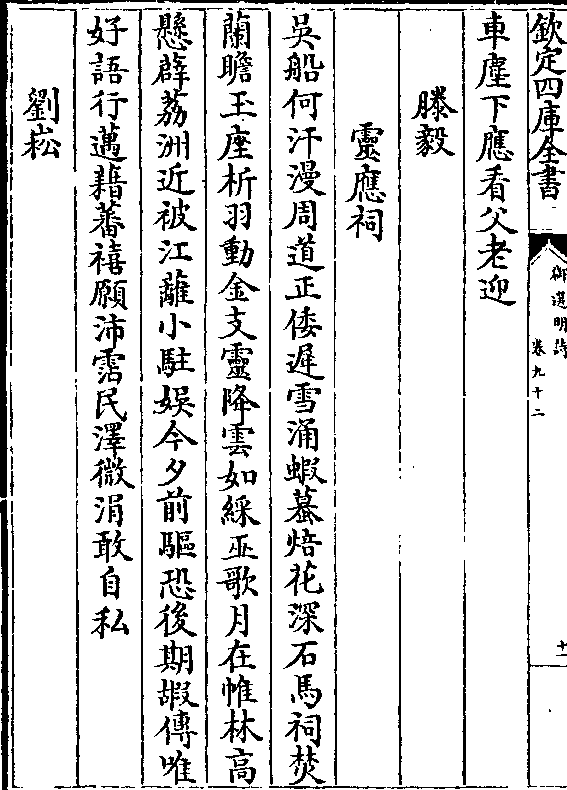 欽定四庫全書
御選明詩
卷九十二
十一
車塵下應看父老迎
滕毅
靈應祠
吳船何汗漫周道正倭遲雪涌蝦蟇焙花深石馬祠焚
蘭瞻玉座析羽動金支靈降雲如綵巫歌月在帷林高
懸薜荔洲近被江蘺小駐娱今夕前驅恐後期嘏傳唯
好語行邁藉蕃禧願沛霑民澤微涓敢自私
劉崧